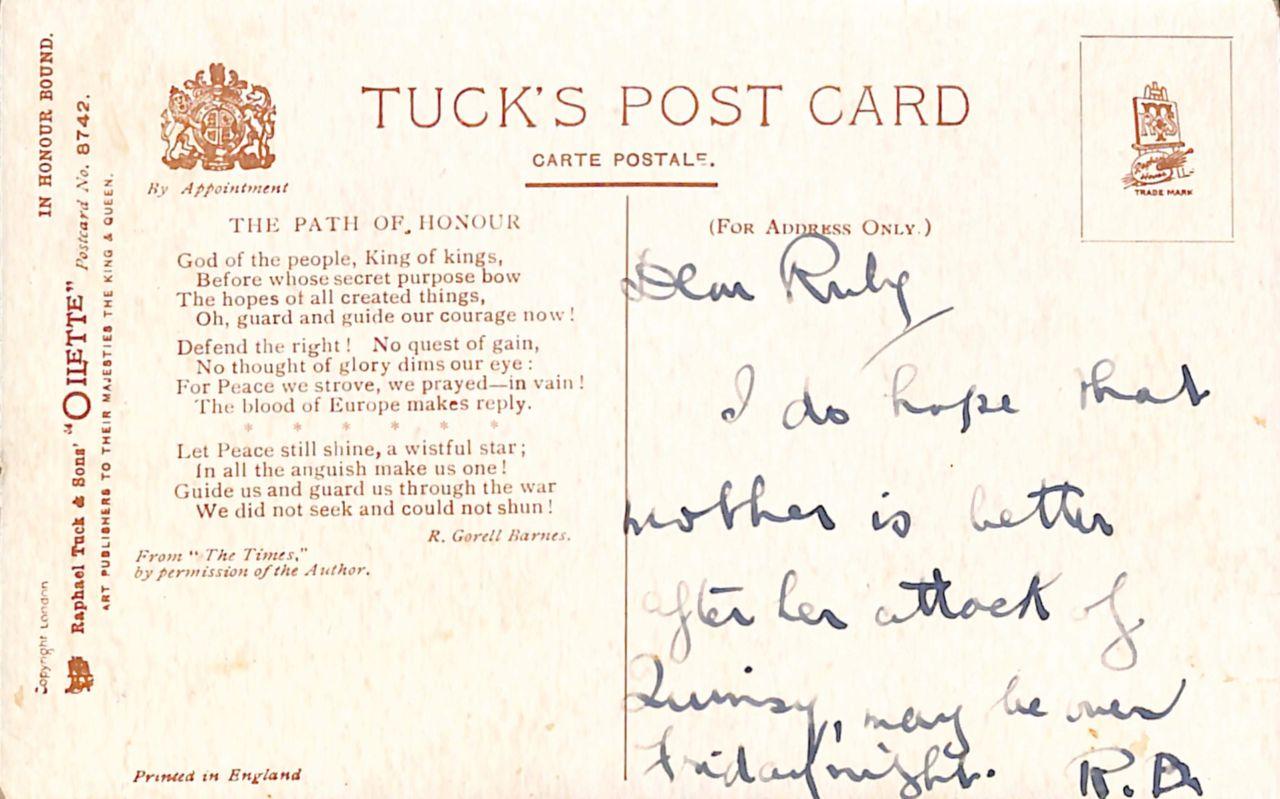 IN HONOUR BOUND.
Raphael Tuck & Sons' "OILETTE" Postcard No. 8742.
ART PUBLISHERS TO THEIR MAJESTIES THE KING & QUEEN.
Copyright London
By Appointment
TUCK'S POST CARD
CARTE POSTALE.
TRADE MARK
THE PATH OF HONOUR
God of the people, King of kings,
Before whose secret purpose bow
The hopes of all created things,
Oh, guard and guide our courage now!
Defend the right! No quest of gain,
No thought of glory dims our eye:
For Peace we strove, we prayed—in vain!
The blood of Europe makes reply.
* * * * * *
Let Peace still shine, a wistful star;
In all the anguish make us one!
Guide us and guard us through the war
We did not seek and could not shun!
R. Gorell Barnes.
From "The Times,"
by permission of the Author.
Printed in England
(FOR ADDRESS ONLY.)
Dear Ruby
I do hope that
mother is better
after her attack of
Quinsy, may be over
Friday night. R.D.